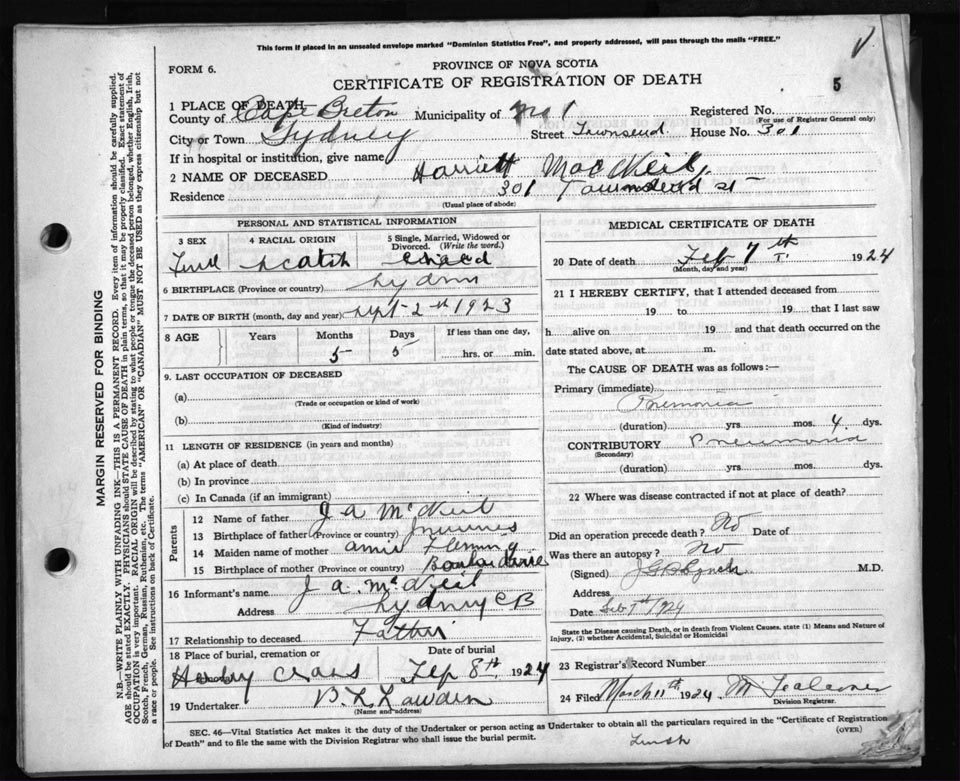 This form if placed in an unsealed envelope marked "Dominion Statistics Free", and properly addressed, will pass through the mails "FREE."
FORM 6.
PROVINCE OF NOVA SCOTIA
CERTIFICATE OF REGISTRATION OF DEATH
5
1 PLACE OF DEATH
County of Cape Breton Municipality of No 1 Registered No.
(For use of Registrar General only)
City or Town Sydney Street Townsend. House No. 301
If in hospital or institution, give name
2 NAME OF DECEASED Harriett MacNeil,
Residence 301 Townsend st
(Usual place of abode)
PERSONAL AND STATISTICAL INFORMATION
3 SEX 4 RACIAL ORIGIN 5 Single, Married, Widowed or Divorced. (Write the word.)
Scotch
6 BIRTHPLACE (Province or country) Sydney
7 DATE OF BIRTH (month, day and year) Sept-2nd 1923
8 AGE Years Months Days If less than one day,
5 5 hrs. or min.
9. LAST OCCUPATION OF DECEASED
(a)
(Trade or occupation or kind of work)
(b)
(Kind of industry)
11 LENGTH OF RESIDENCE (in years and months)
(a) At place of death
(b) In province
(c) In Canada (if an immigrant)
Parents
12 Name of father J A McNeil
13 Birthplace of father (Province or country)
14 Maiden name of mother Annie Fleming
15 Birthplace of mother (Province or country)
16 Informant's name J A. McNeil
Address Sydney C B
17 Relationship to deceased Father
18 Place of burial, cremation or Date of burial
Holy Cross Feb 8th. 1924
19 Undertaker
(Name and address)
MEDICAL CERTIFICATE OF DEATH
20 Date of death Feb 7th 1924
(Month, day and year)
21 I HEREBY CERTIFY, that I attended deceased from
19 to 19 that I last saw
h alive on 19 and that death occurred on the
date stated above, at m.
The CAUSE OF DEATH was as follows:—
Primary (immediate)
Pneumonia
(duration) yrs. mos. 4. dys.
CONTRIBUTORY Pneumonia
(Secondary)
(duration) yrs. mos. dys.
22 Where was disease contracted if not at place of death?
Did an operation precede death? No Date of
Was there an autopsy? No
(Signed) Lynch M.D.
Address
Date Feb 7th/1924
State the Disease causing Death, or in death from Violent Causes, state (1) Means and Nature of
Injury, (2) whether Accidental, Suicidal or Homicidal
23 Registrar's Record Number
24 Filed March 11th 1924
Division Registrar.
SEC. 46—Vital Statistics Act makes it the duty of the Undertaker or person acting as Undertaker to obtain all the particulars required in the "Certificate of Registration
of Death" and to file the same with the Division Registrar who shall issue the burial permit.
(OVER)
MARGIN RESERVED FOR BINDING
N.B.—WRITE PLAINLY WITH UNFADING INK—THIS IS A PERMANENT RECORD. Every item of information should be carefully supplied.
AGE should be stated EXACTLY. PHYSICIANS should STATE CAUSE OF DEATH in plain terms, so that it may be properly classified. Exact statement of
OCCUPATION is very important. RACIAL ORIGIN will be described by stating to what people or tongue the deceased person belonged, whether English, Irish,
Scotch, French, German, Russian, Ruthenian, etc. The terms "AMERICAN" OR "CANADIAN" MUST NOT BE USED as they express citizenship but not
a race or people. See instructions on back of Certificate.